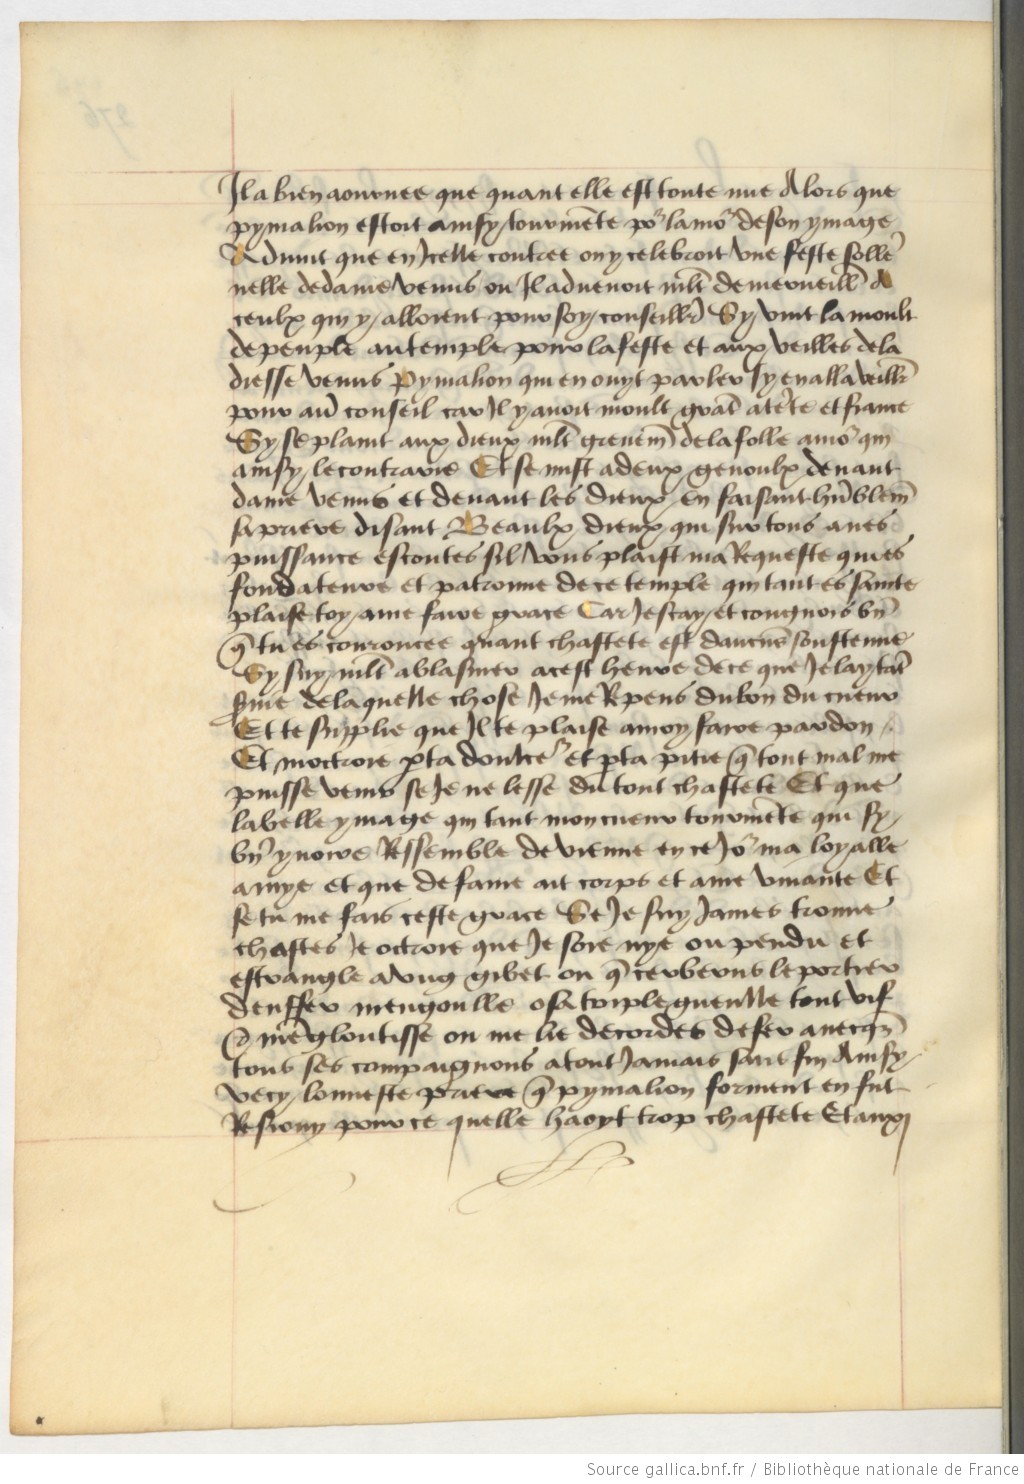 Il a bien aournee que quant elle est toute nue Alors que
pymalion estoit ainsy tourmẽte poʳ lamoʳ de son ymage
Aduint que en Icelle contree on y celebroit vne feste sollẽ
nelle de dame venus ou Il aduenoit mlt̃ de merueill̃ A
ceulx qui y alloient pour soy conseill̃r Sy vint la moult
de peuple au temple pour la feste et aux veilles de la
diesse venus Pymalion qui en ouyt parler sy en alla veill̃r
pour au͂ conseil car Il y auoit moult grãt atẽte et fiance
Sy se plaint aux dieux mlt̃ greuem̃ de la folle amoʳ qui
ainsy le contrarie Et se mist a deux genoulx deuant
dame venus et deuant les dieux en faisant hũblem̃
sa priere disant Beaulx dieux qui sur tous aues
puissance escoutes sil vous plaist ma Requeste qui es
fondateure et patronne de ce temple qui tant es saincte
plaise toy a me faire grace Car Je scay et congnois bñ
q̃ tu es couroucee quant chastete est daucũs soustenue
Sy suy mlt̃ a blasmer a cest heure de ce que Je lay tãt
suie de laquelle chose Je me Repens du bon du cueur
Et te supplie que Il te plaise a moy faire pardon
Et moctroie p̱ ta doulceʳ et p̱ ta pitie q̃ tout mal me
puisse venir se Je ne lesse du tout chastete Et que
la belle ymage qui tant mon cueur tourmẽte qui sy
bñ yuoire Ressemble deuienne en ce Joʳ ma loyalle
amye et que de fame ait corps et ame viuante Et
se tu me fais ceste grace Se Je suy James trouue
chastes Je octroie que Je soie nye ou pendu et
estrangle a vug gibet ou q̃ cerberus le portier
denffer mengoulle o sa triple gueulle tout vif
et mẽgloutisse ou me lie de cordes de fer auecq̃
tous ses compaignons a tout Jamais sans fin Ainsy
vecy lonneste priere q̃ pymalion forment en fut
Resiouy pour ce quelle haoyt trop chastete Et auxi
Source gallica.bnf.fr / Bibliothèque nationale de France